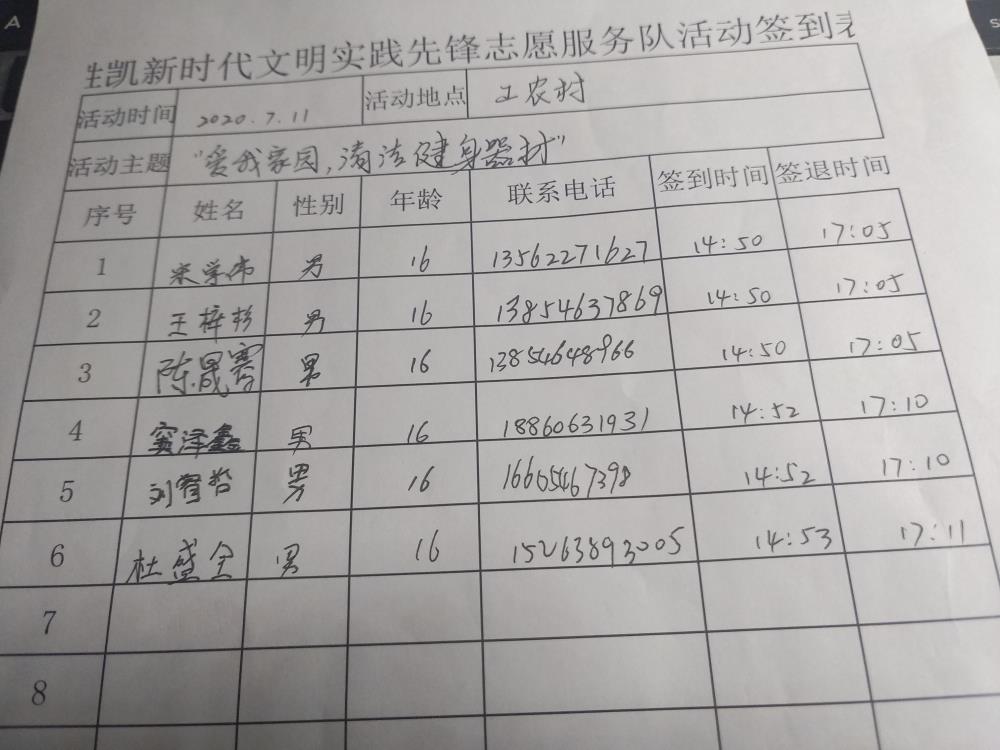 胜凯新时代文明实践先锋志愿服务队活动签到表
活动时间 2020.7.11 活动地点 工农村
活动主题 "爱我家园,清洁健身器材"
序号 姓名 性别 年龄 联系电话 签到时间 签退时间
1 宋学伟 男 16 13562271627 14:50 17:05
2 王梓杉 男 16 13854637869 14:50 17:05
3 陈晟霱 男 16 13854648966 14:50 17:05
4 窦泽鑫 男 16 18860631931 14:52 17:10
5 刘智哲 男 16 16605467398 14:52 17:10
6 杜盛全 男 16 15263893005 14:53 17:11
7
8